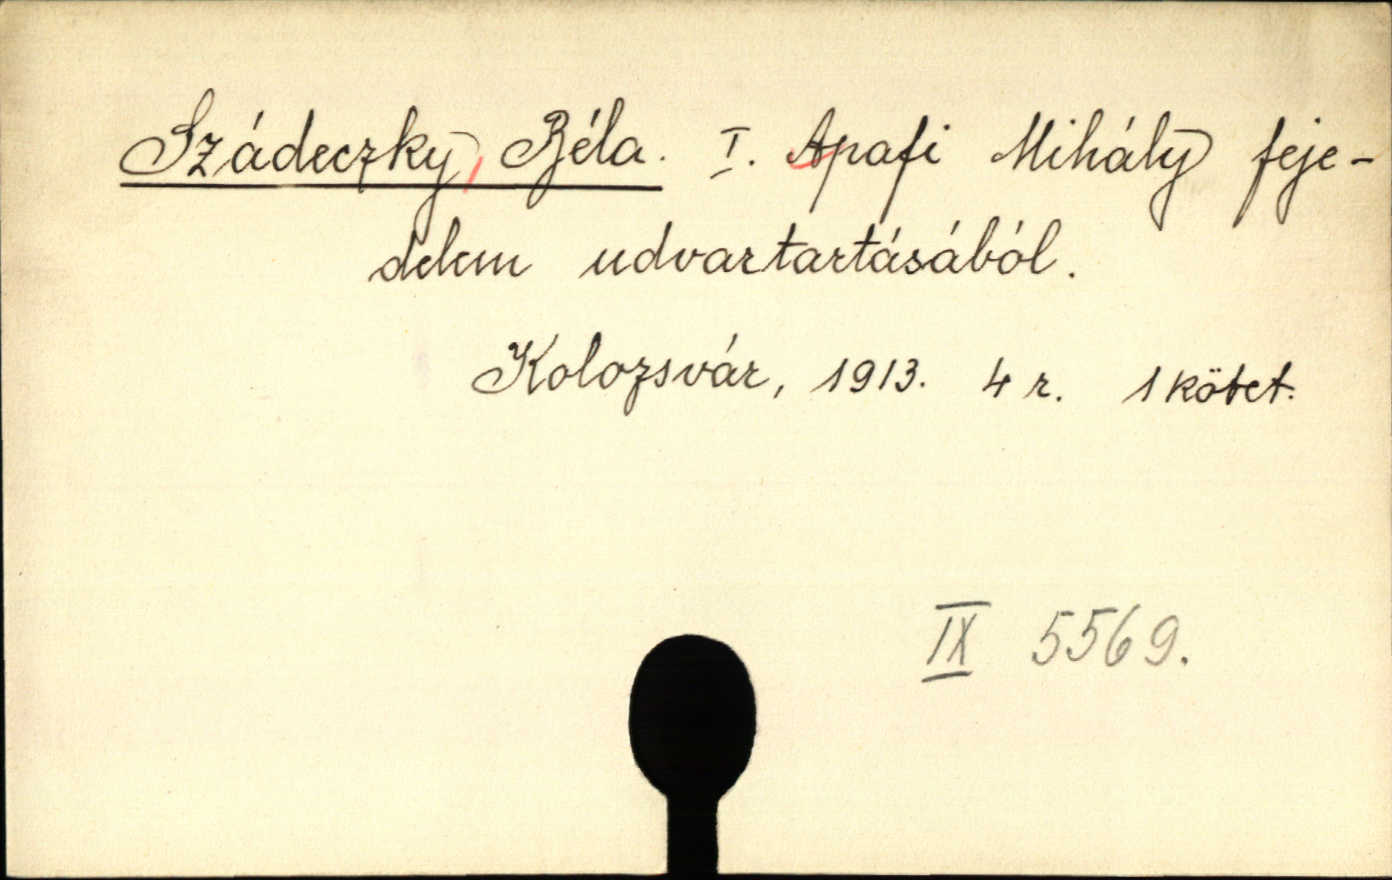 Szádeczky, Béla. I. Apafi Mihály feje-
delem udvartartásából.
Kolozsvár, 1913. 4 r. 1 kötet.
IX 5569.